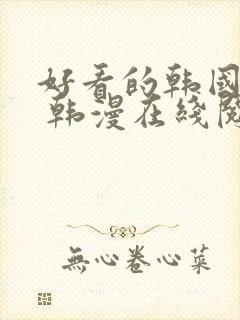 好看的韩国
韩漫在线阅
無心卷心菜